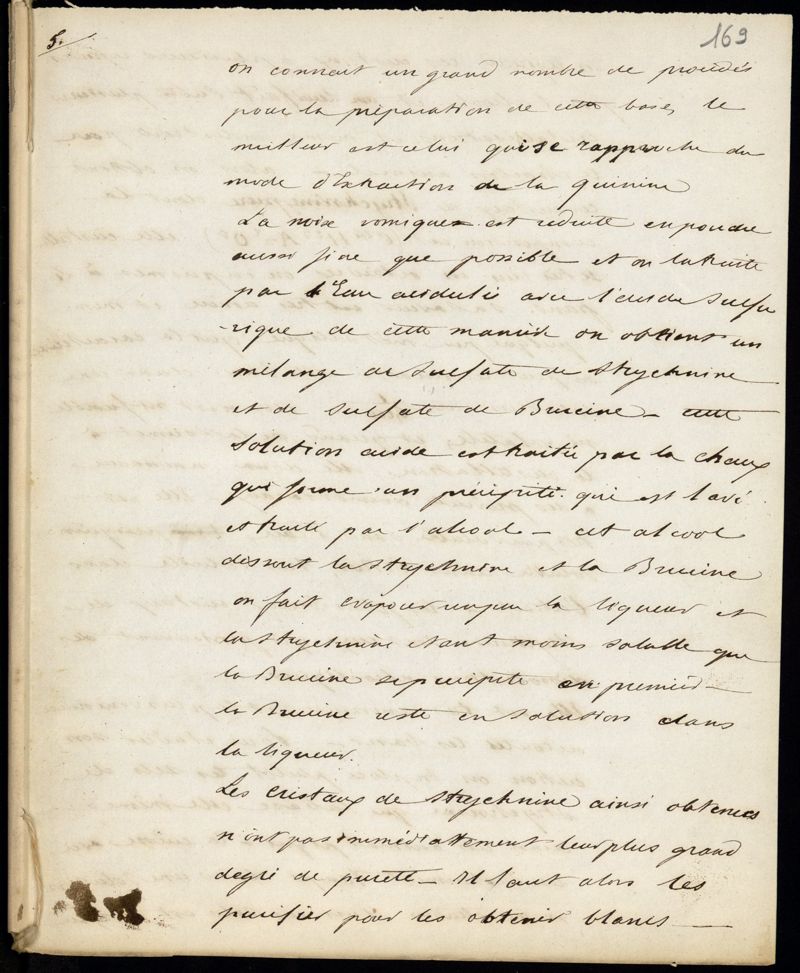 5.
169
on connait un grand nombre de procédés
pour la préparation de cette base, le
meilleur est celui qui se rapproche du
mode d'Extraction de la quinine
La noix vomique est reduite en poudre
aussi fine que possible et on la traite
par l'Eau acidulée avec l'acide Sulfu
-rique de cette manière on obtient un
mélange de Sulfate de Strychnine
et de Sulfate de Brucine - cette
solution acide est traitée par la chaux
qui forme un précipité qui est lavé
et traité par l'alcool - cet alcool
dissout la Strychnine et la Brucine
on fait evaporer un peu la liqueur et
la Strychnine etant moins soluble que
la Brucine se precipite en premier -
la Brucine reste en solution dans
la liqueur.
Les cristaux de Strychnine ainsi obtenus
n'ont pas immédiattement leur plus grand
degré de pureté - Il faut alors les
purifier pour les obtenir blancs -